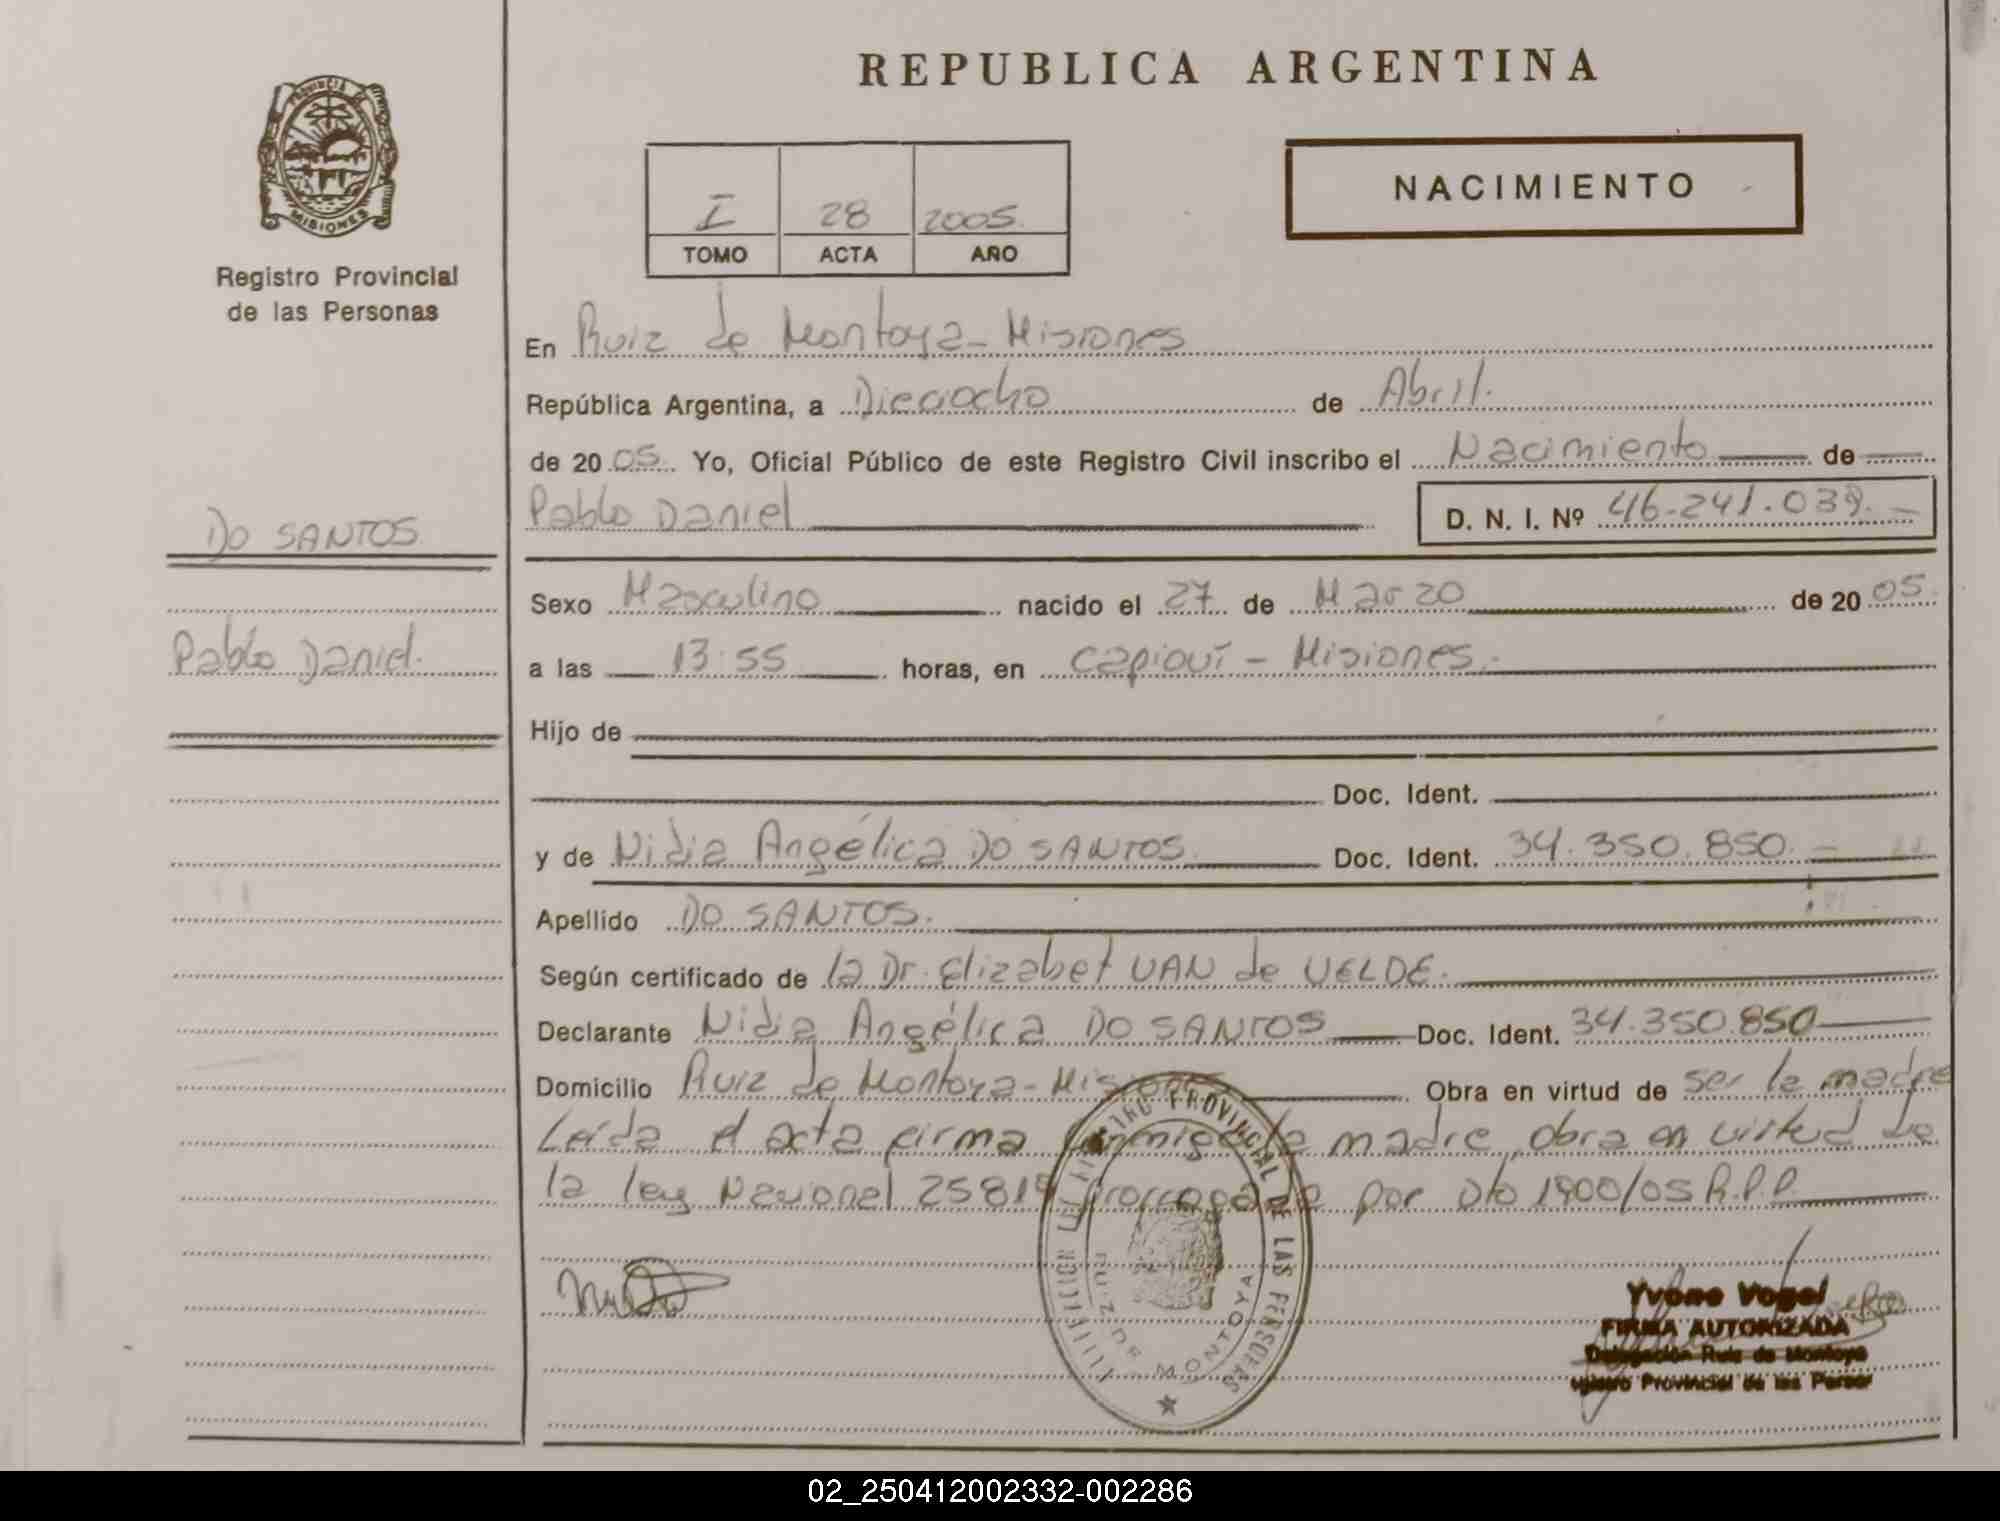 PROVINCIA DE
MISIONES
Registro Provincial
de las Personas
DO SANTOS
Pablo Daniel.
REPUBLICA ARGENTINA
I 28 2005.
TOMO ACTA AÑO
NACIMIENTO
En Ruiz de Montoya - Misiones
República Argentina, a Dieciocho de Abril.
de 2005. Yo, Oficial Público de este Registro Civil inscribo el Nacimiento de
Pablo Daniel D. N. I. Nº 46.241.039.
Sexo Masculino nacido el 27 de Marzo de 2005.
a las 13:55 horas, en Capioví - Misiones.-
Hijo de
Doc. Ident.
y de Nidia Angélica DO SANTOS. Doc. Ident. 34.350.850.-
Apellido DO SANTOS.
Según certificado de la Dr. Elizabet VAN de VELDE.
Declarante Nidia Angélica DO SANTOS Doc. Ident. 34.350.850
Domicilio Ruiz de Montoya - Misiones Obra en virtud de ser la madre
Leída el acta firma conmigo la madre, obra en virtud de
la ley Nacional 25819 prorrogada por Dto 1900/05 R.P.P.
PROVINCIAL DE LAS PERSONAS
RUIZ DE MONTOYA
Yvone Vogel
FIRMA AUTORIZADA
Delegación Ruiz de Montoya
Registro Provincial de las Person
02_250412002332-002286